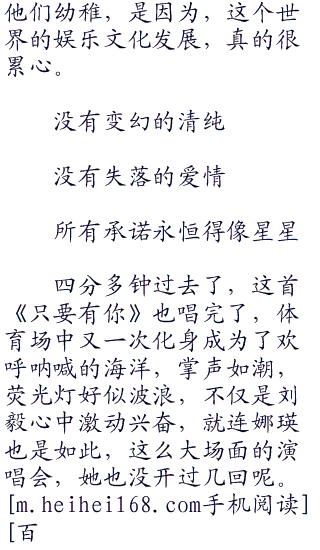 他们幼稚，是因为，这个世
界的娱乐文化发展，真的很
累心。
没有变幻的清纯
没有失落的爱情
所有承诺永恒得像星星
四分多钟过去了，这首
《只要有你》也唱完了，体
育场中又一次化身成为了欢
呼呐喊的海洋，掌声如潮，
荧光灯好似波浪，不仅是刘
毅心中激动兴奋，就连娜瑛
也是如此，这么大场面的演
唱会，她也没开过几回呢。
[m.heihei168.com手机阅读]
[百